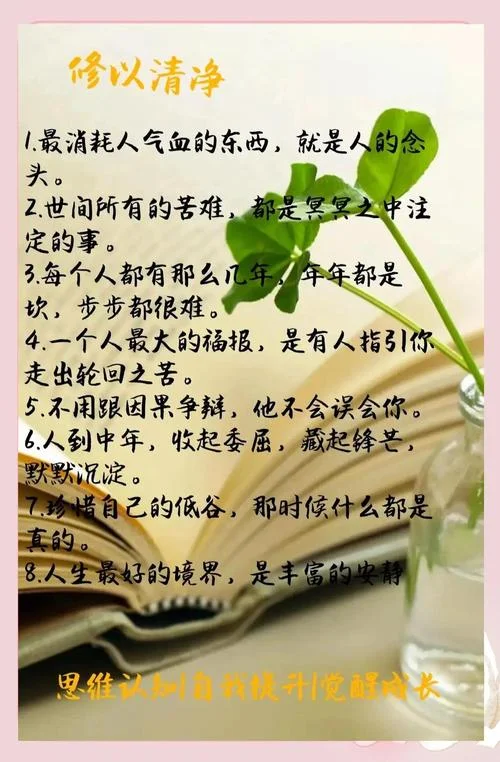 修以清净
1.最消耗人气血的东西，就是人的念
头。
2.世间所有的苦难，都是冥冥之中注
定的事。
3.每个人都有那么几年，年年都是
坎，步步都很难。
4.一个人最大的福报，是有人指引你
走出轮回之苦。
5.不用跟因果争辩，他不会误会你。
6.人到中年，收起委屈，藏起锋芒，
默默沉淀。
7.珍惜自己的低谷，那时候什么都是
真的。
8.人生最好的境界，是丰富的安静
思维认知|自我提升|觉醒成长